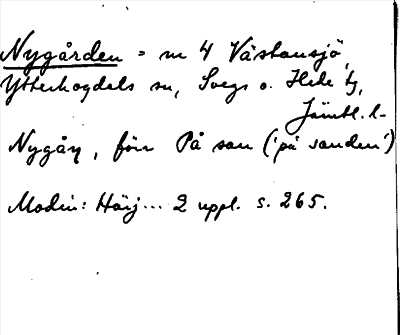 Nygården = nr 4 Västansjö,
Ytterhogdals sn, Svegs o. Hede tg,
Jämtl. l.
Nygåŋ, förr På san ('på sanden')
Modin: Härj... 2 uppl. s. 265.